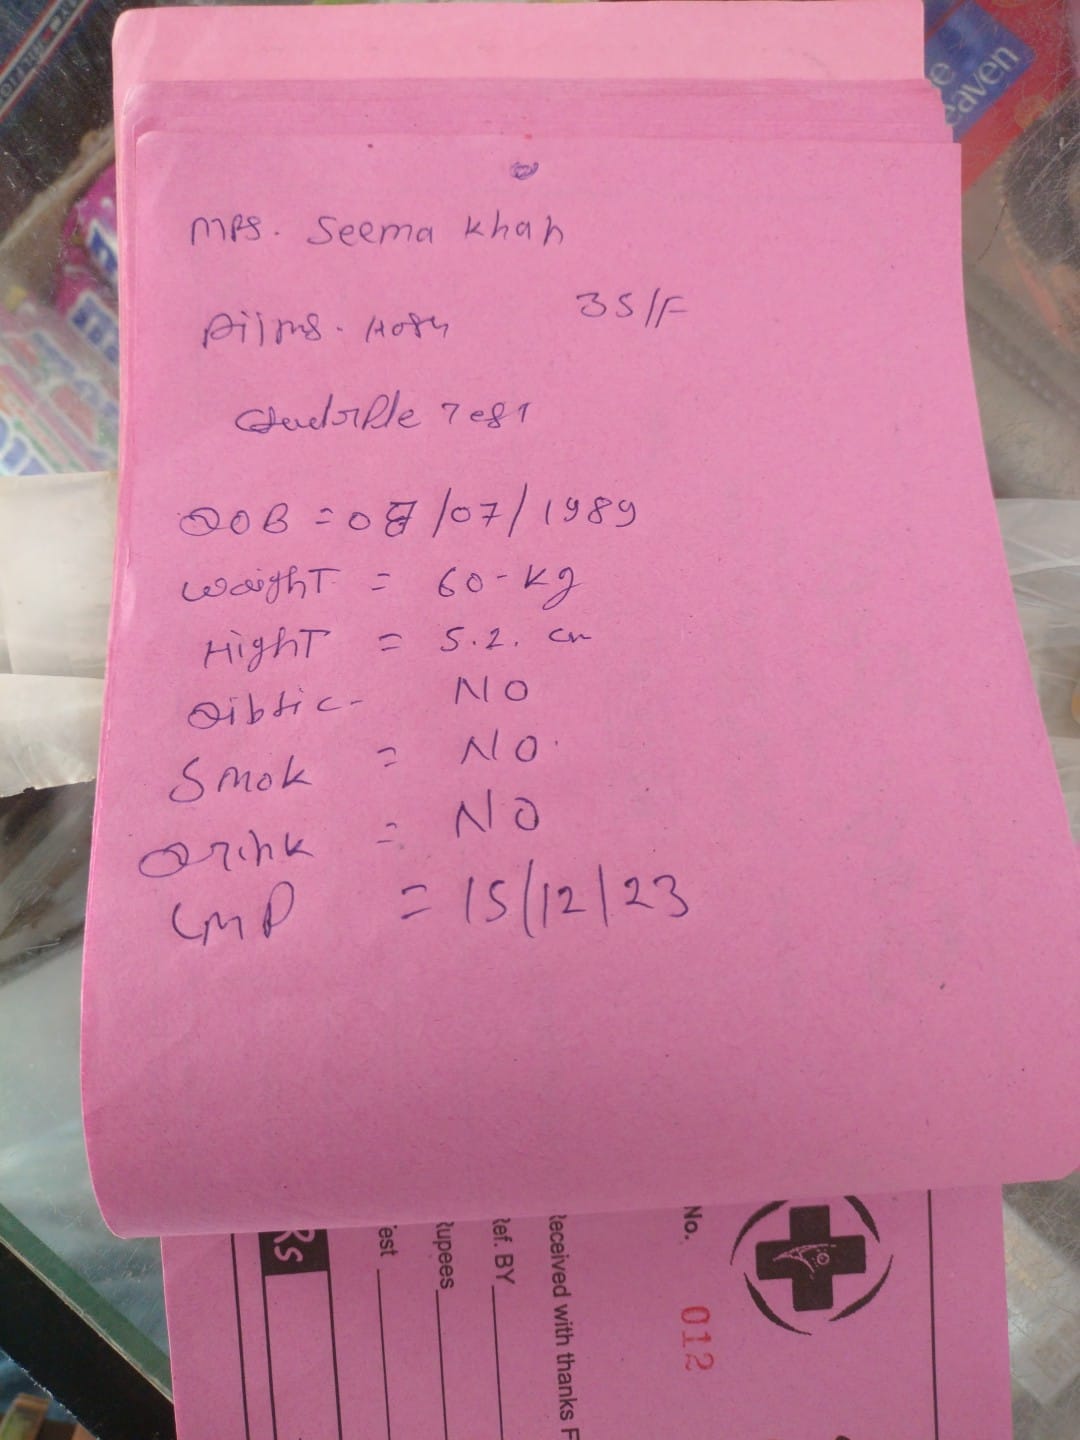 MRS. Seema Khan
35/F
Aiims. Hosp
Quadriple Test
DOB = 07/07/1989
Waight = 60-kg
Hight = 5.2. cm
Dibtic- NO
Smok = NO.
Drink = NO
LMP = 15/12/23
No. 012
Received with thanks F
Ref. BY
Rupees
Test
Rs
eaven